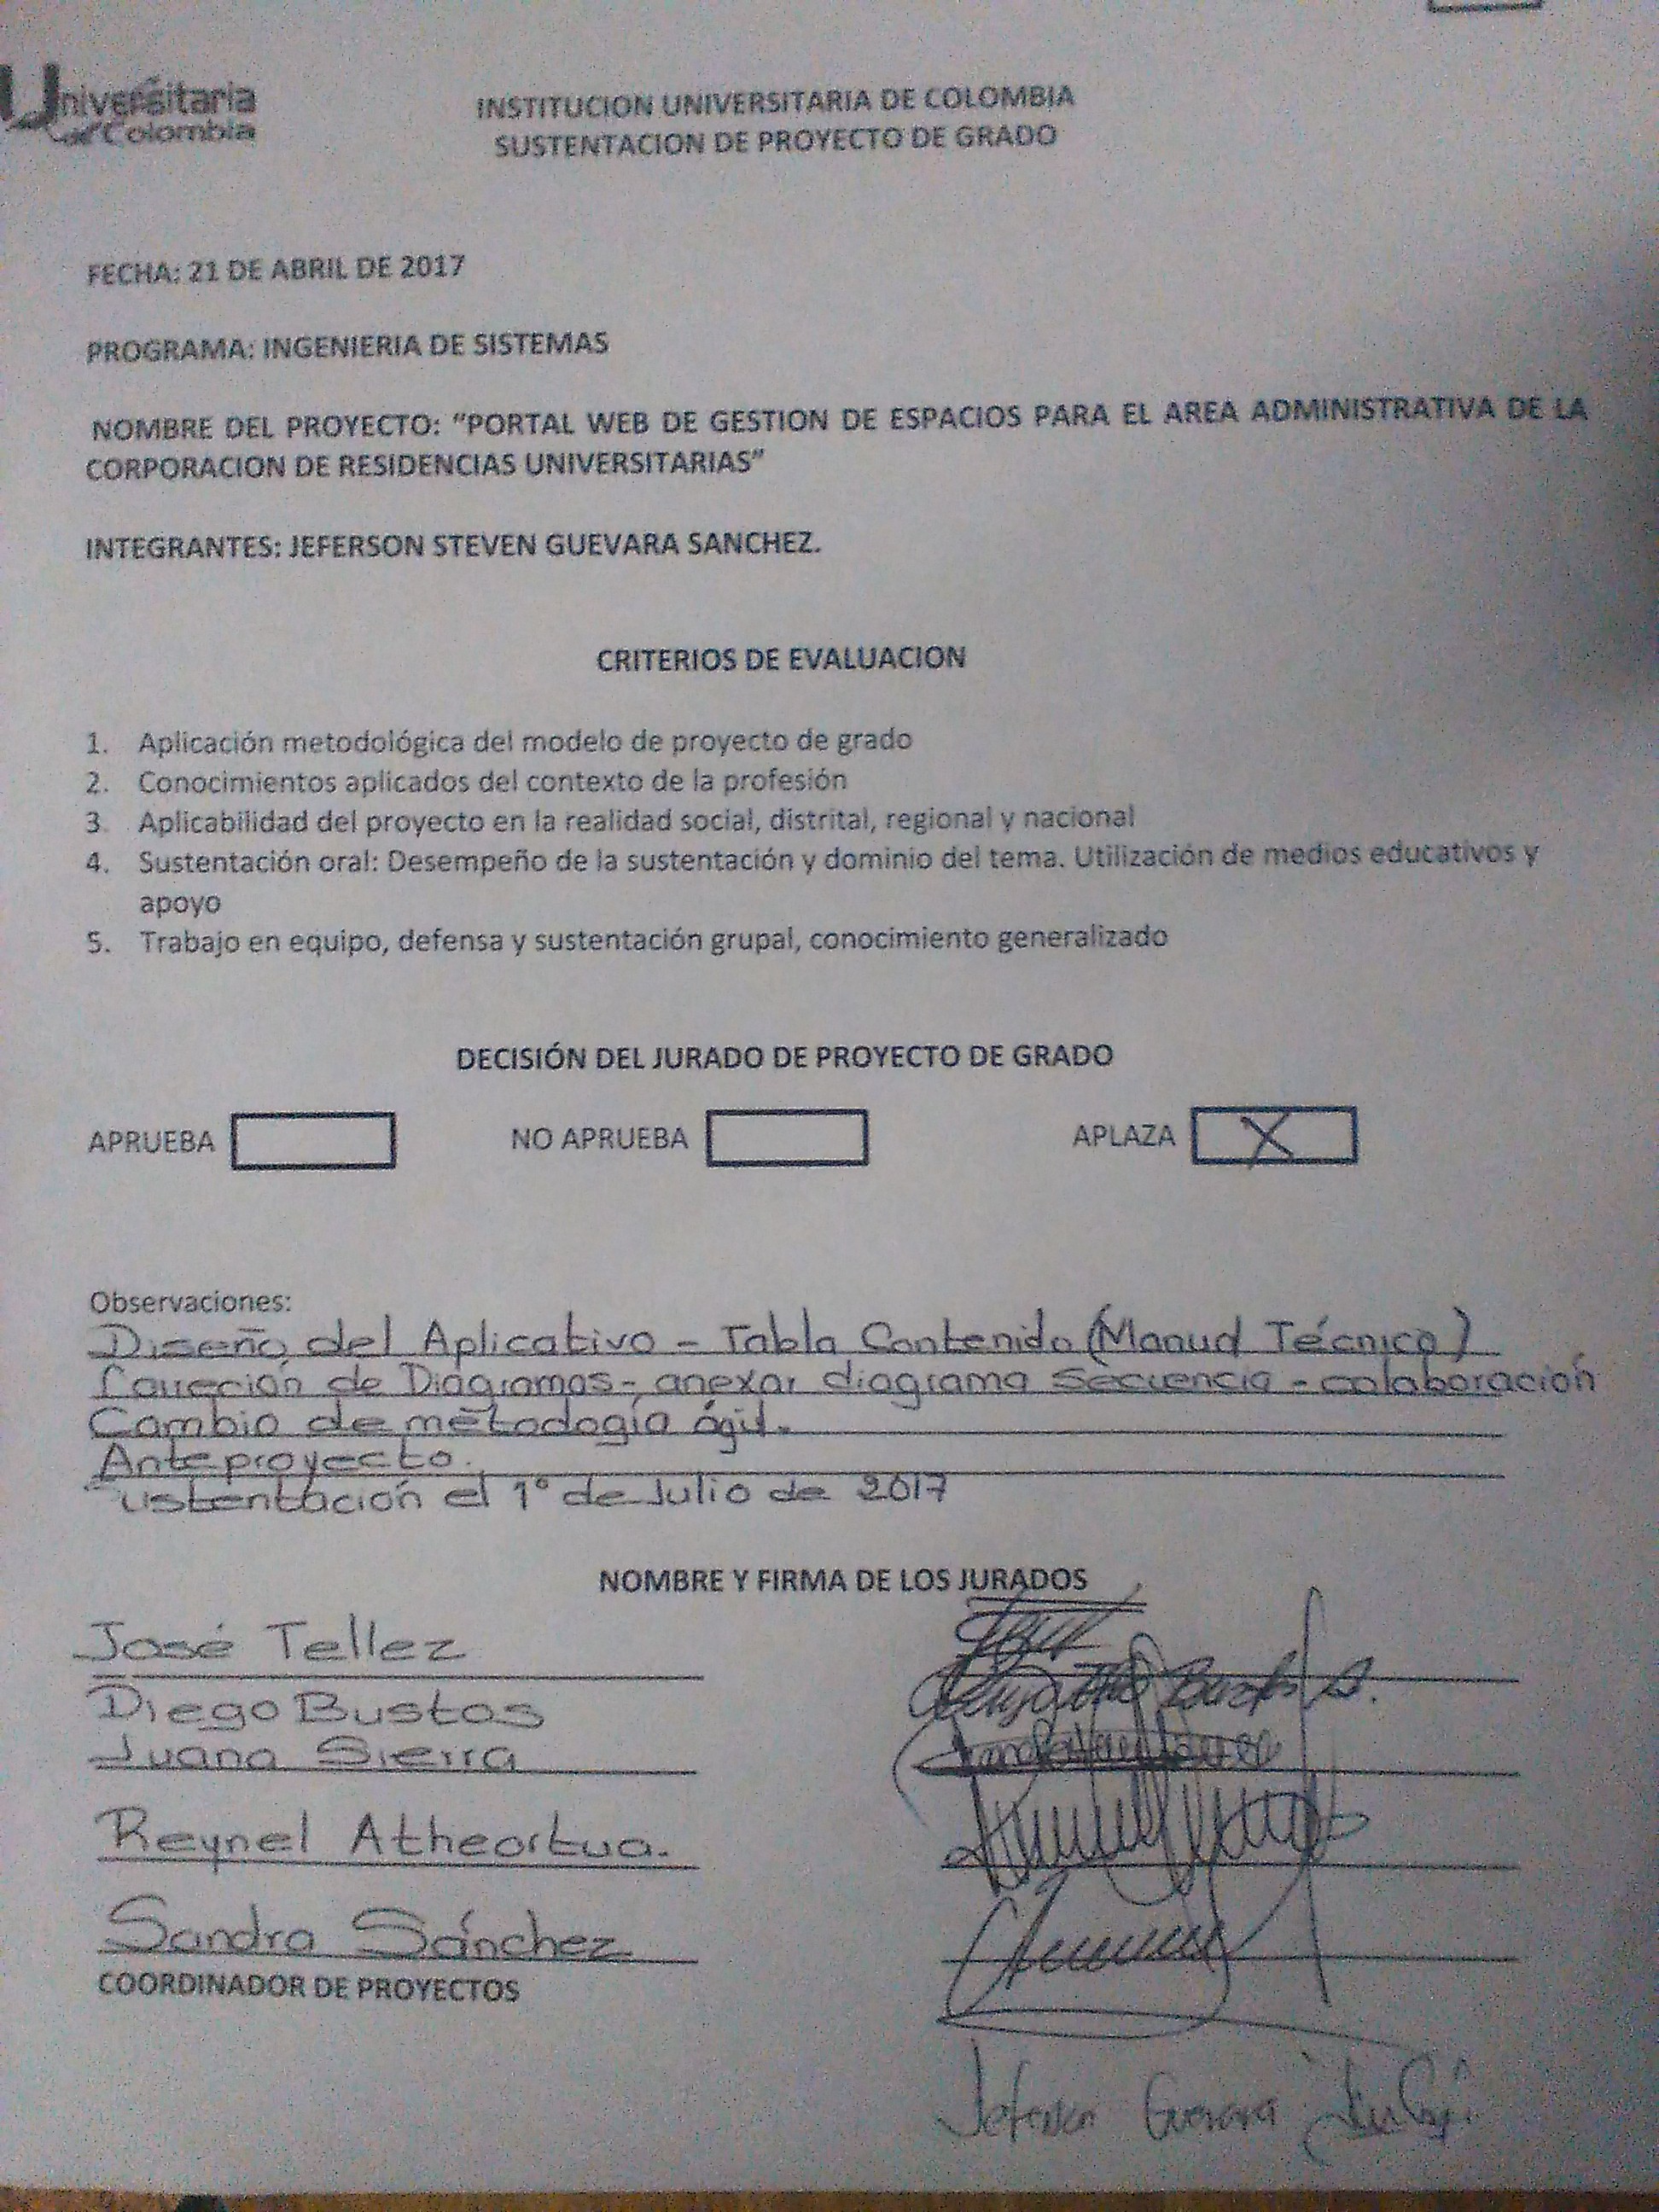 Universitaria
de Colombia
INSTITUCION UNIVERSITARIA DE COLOMBIA
SUSTENTACION DE PROYECTO DE GRADO
FECHA: 21 DE ABRIL DE 2017
PROGRAMA: INGENIERIA DE SISTEMAS
NOMBRE DEL PROYECTO: “PORTAL WEB DE GESTION DE ESPACIOS PARA EL AREA ADMINISTRATIVA DE LA
CORPORACION DE RESIDENCIAS UNIVERSITARIAS”
INTEGRANTES: JEFERSON STEVEN GUEVARA SANCHEZ.
CRITERIOS DE EVALUACION
1. Aplicación metodológica del modelo de proyecto de grado
2. Conocimientos aplicados del contexto de la profesión
3. Aplicabilidad del proyecto en la realidad social, distrital, regional y nacional
4. Sustentación oral: Desempeño de la sustentación y dominio del tema. Utilización de medios educativos y
apoyo
5. Trabajo en equipo, defensa y sustentación grupal, conocimiento generalizado
DECISIÓN DEL JURADO DE PROYECTO DE GRADO
APRUEBA NO APRUEBA APLAZA X
Observaciones:
Diseño del Aplicativo - Tabla Contenido (Manual Técnico)
Corrección de Diagramas - anexar diagrama Secuencia - colaboración
Cambio de metodogía ágil.
Anteproyecto.
Sustentación el 1° de Julio de 2017
NOMBRE Y FIRMA DE LOS JURADOS
José Tellez
Diego Bustos
Juana Sierra
Reynel Atheortua.
Sandra Sánchez
COORDINADOR DE PROYECTOS
Jeferson Guevara